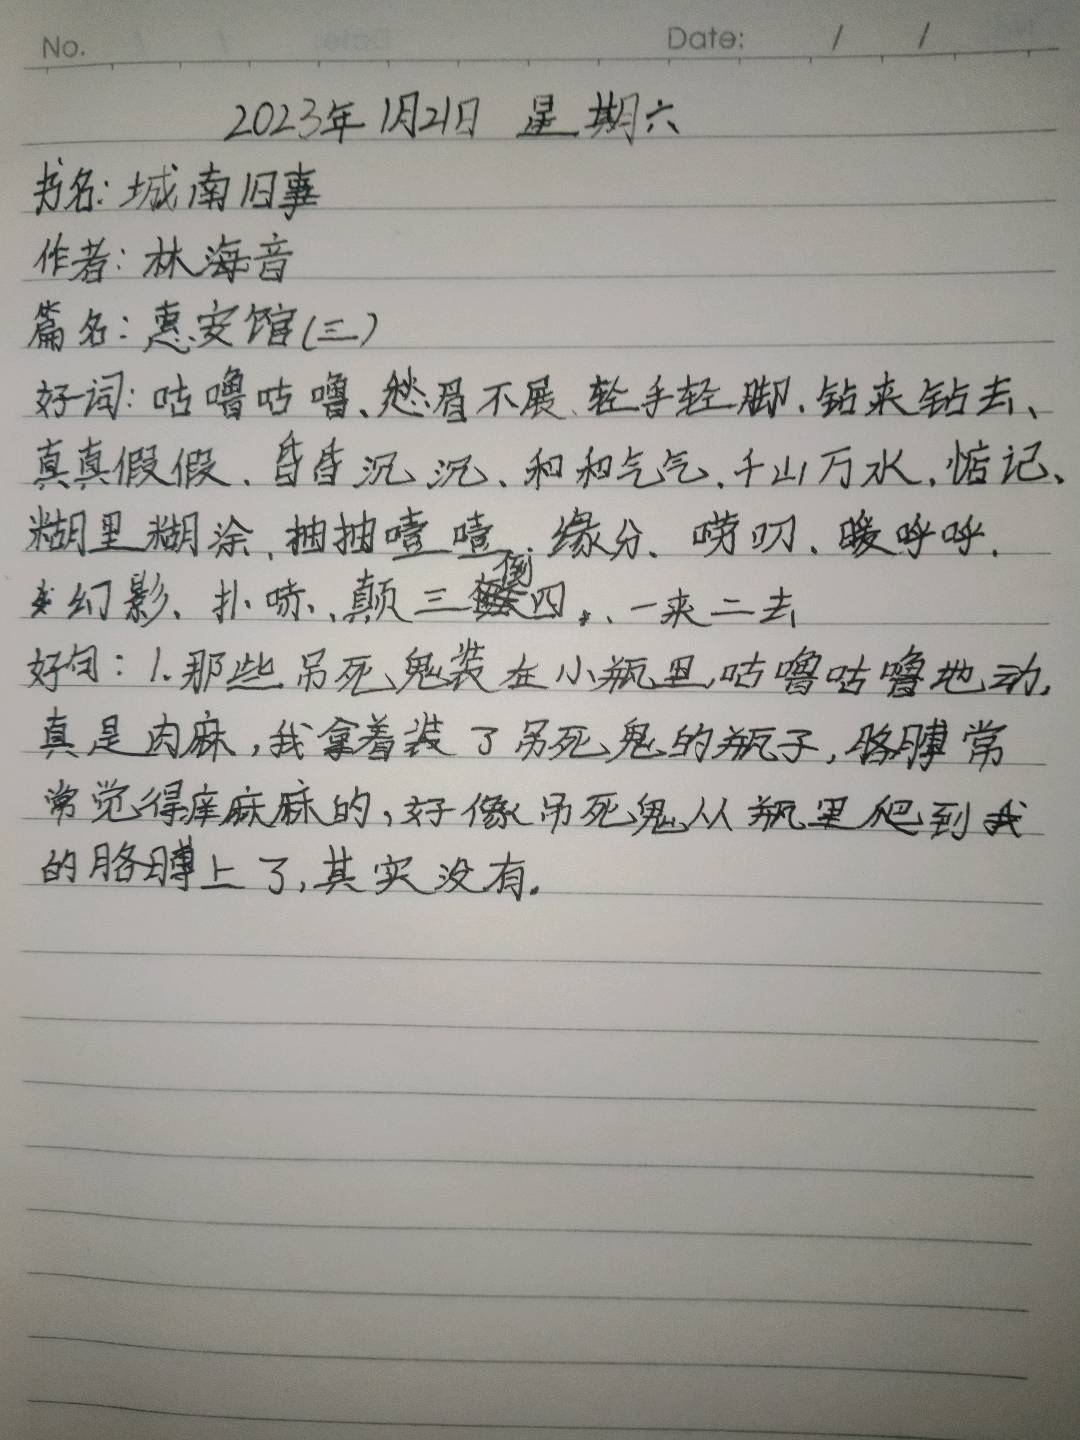 No. Date: / /
2023年1月21日 星期六
书名：城南旧事
作者：林海音
篇名：惠安馆(三)
好词：咕噜咕噜、愁眉不展、轻手轻脚、钻来钻去、
真真假假、昏昏沉沉、和和气气、千山万水、惦记、
糊里糊涂、抽抽噎噎、缘分、唠叨、暖呼呼、
幻影、扑哧、颠三倒四、一来二去
好句：1.那些吊死鬼装在小瓶里，咕噜咕噜地动，
真是肉麻，我拿着装了吊死鬼的瓶子，胳膊常
常觉得痒麻麻的，好像吊死鬼从瓶里爬到我
的胳膊上了，其实没有。